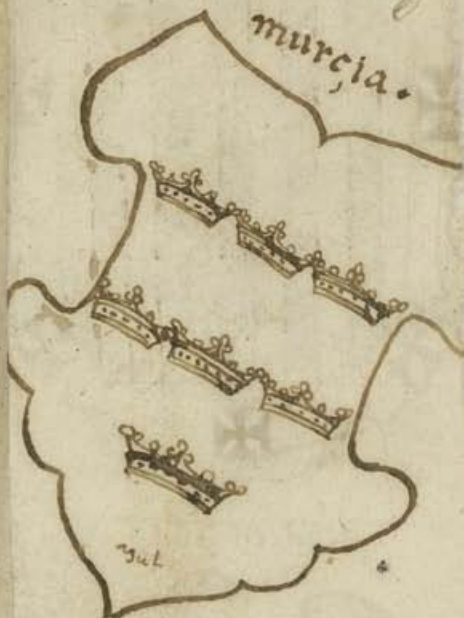 murçia.
azul